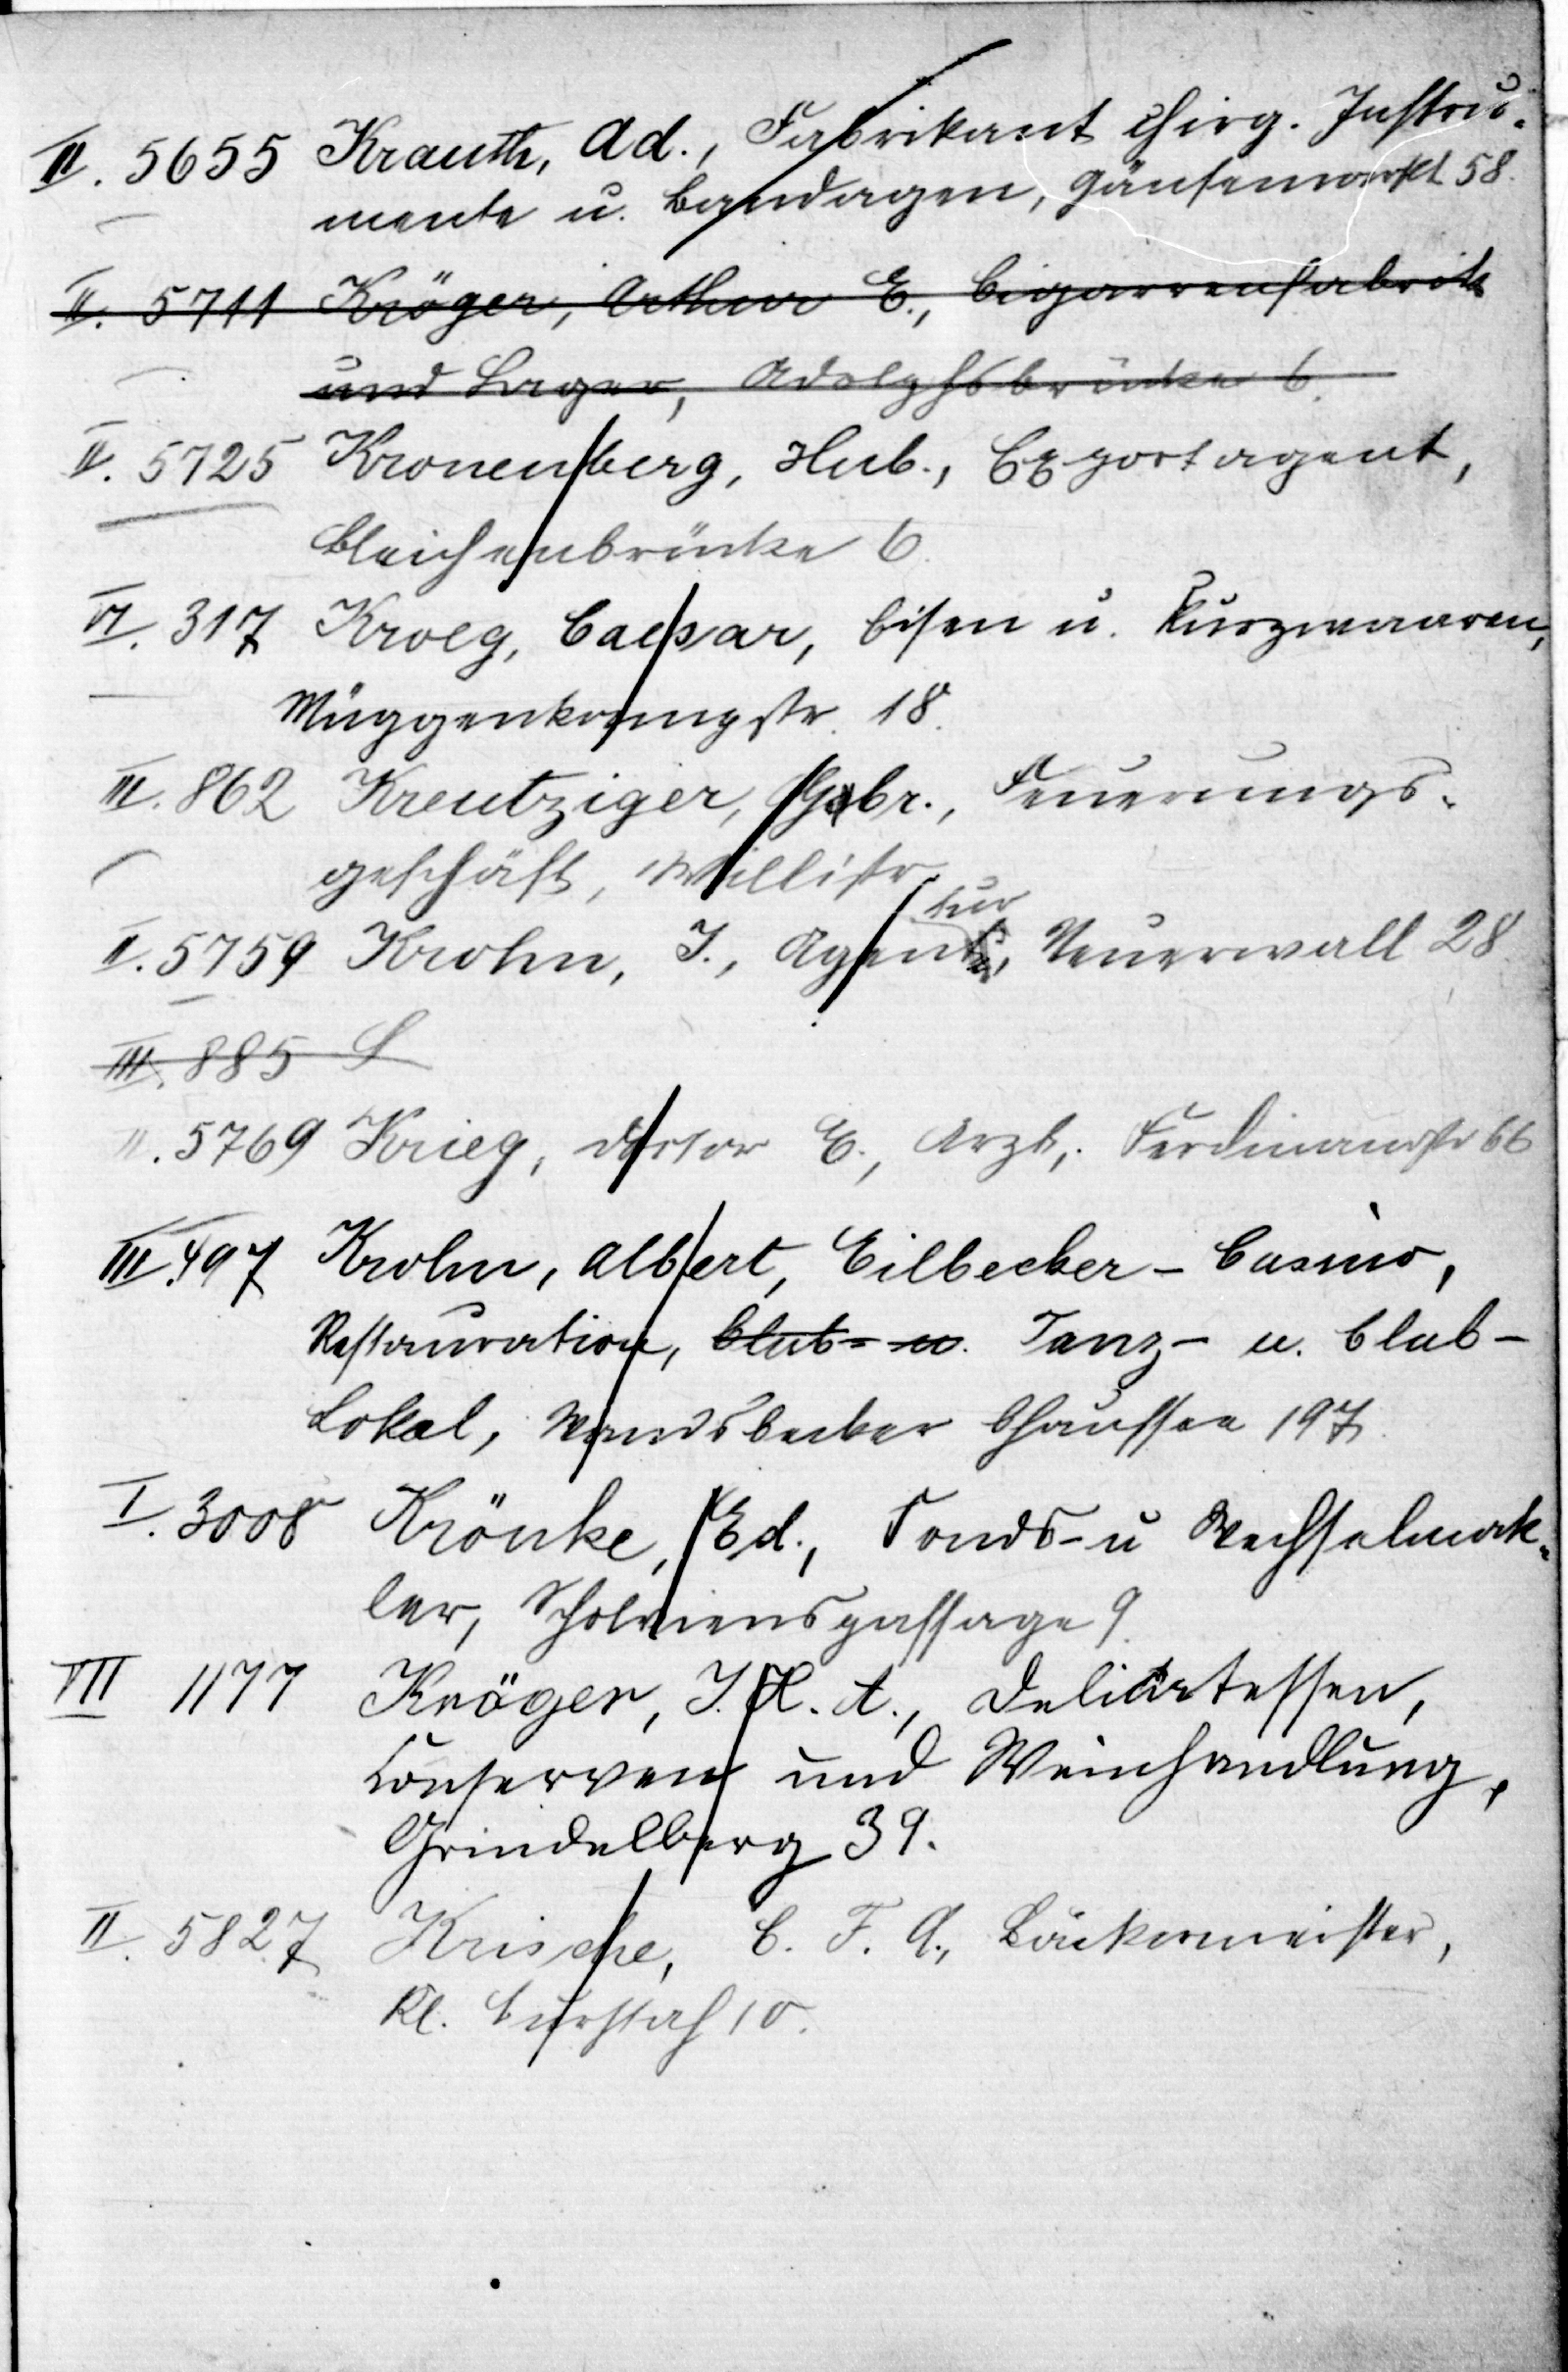 II. 5655 Krauth, Ad., Fabrikant chirg. Instru-
mente u. Bandagen, Gänsemarkt 58.
II. 5711 Kröger, Arthur E., Cigarrenfabrik
und Lager, Adolphsbrücke 6.
II. 5725 Kronenberg, Hub., Exportagent,
Bleichenbrücke 6.
VI. 317 Kroeg, Caesar, Eisen u. Kurzwaaren,
Müggenkampstr. 18.
III. 862 Kreutziger, Gebr., Feuerungs-
geschäft, Willistr.
tur
II. 5759 Krohn, J., Agent, Neuerwall 28.
III. 885 L
II. 5769 Krieg, Doctor E., Arzt, Ferdinandstr 66
III. 497 Krohn, Albert, Eilbecker-Casino,
Restauration, Club- u. Tanz- u. Club-
Lokal, Wandsbecker Chaussee 197.
I. 3008 Krönke, Ed., Fonds- u Wechselmak-
ler, Scholviens passage 9.
VII 1177 Kröger, J. H. A., Delicatessen,
Conserven und Weinhandlung,
Grindelberg 39.
II. 5827 Krische, C. F. A., Bäckermeister,
Kl. Burstah 10.